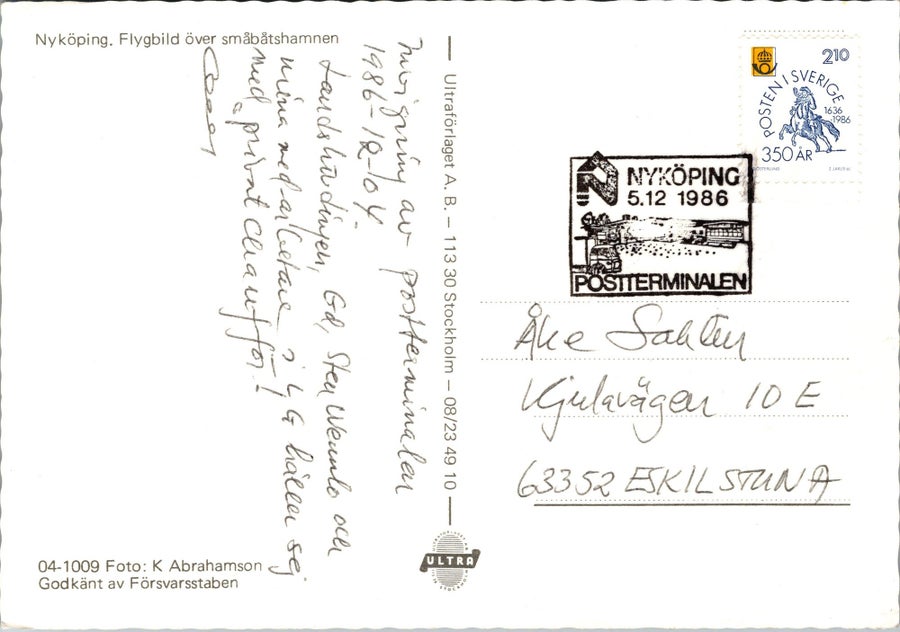 Nyköping. Flygbild över småbåtshamnen
Invigning av postterminalen
1986-12-04.
Landshövdingen, Gd, Sten Wennlo och
mina medarbetare i LG håller sej
med privat chaufför!
04-1009 Foto: K Abrahamson
Godkänt av Försvarsstaben
Ultraförlaget A. B. – 113 30 Stockholm – 08/23 49 10
ULTRA
210
POSTEN I SVERIGE
1636
-1986
350 ÅR
NYKÖPING
5.12 1986
POSTTERMINALEN
Åke Sahlén
Kjulavägen 10 E
63352 ESKILSTUNA